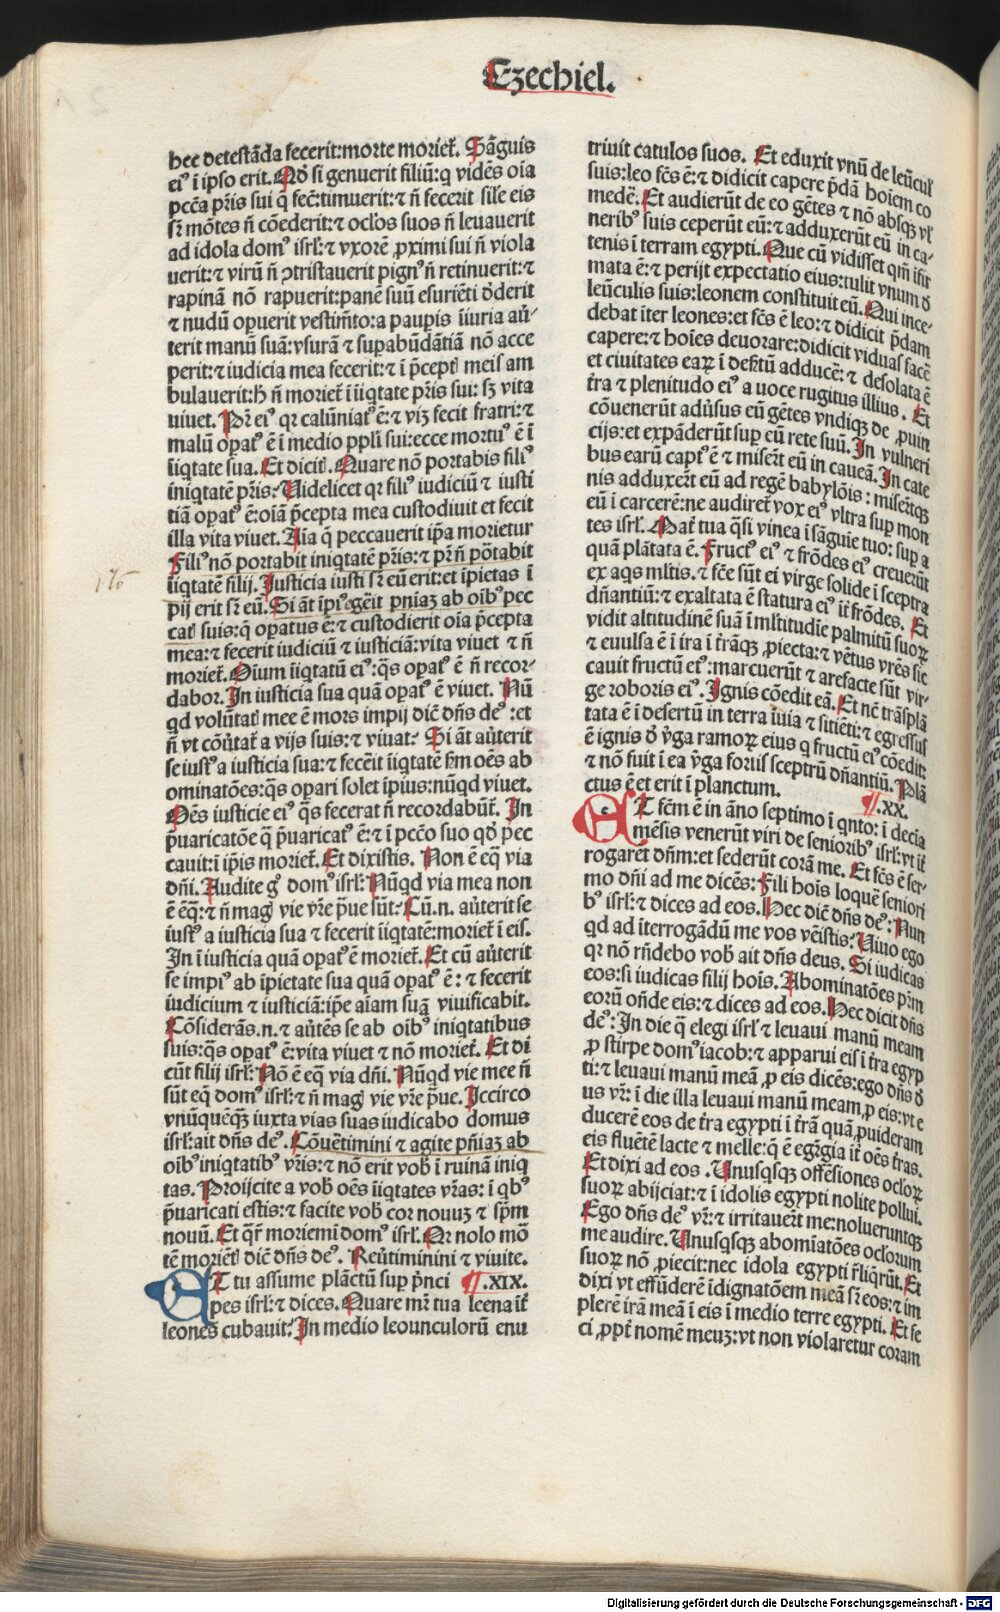 Ezechiel.
hec detestãda fecerit:morte morieť. Sãguis
ei⁹ ĩ ipso erit. Qđ si genuerit filiũ:q vidẽs oĩa
pcc̃a p̃ris sui q̃ fec̃:timuerit:⁊ ñ fecerit sil̃e eis
sr̃ mõtes ñ cõederit:⁊ ocl̃os suos ñ leuauerit
ad idola dom⁹ isrl̃:⁊ vxorẽ ꝓximi sui ñ viola
uerit:⁊ virũ ñ ↄtristauerit pign⁹ ñ retinuerit:⁊
rapinã nõ rapuerit:panẽ suũ esuriẽti đderit
⁊ nudũ oꝑuerit vestim̃to:a pauꝑis ĩiuria au̇-
terit manũ suã:vsurã ⁊ suꝑabũdãtiã nõ acce
perit:⁊ iudicia mea fecerit:⁊ ĩ p̃cept̃ meis am
bulauerit:h̃ ñ morieť ĩ iiq̃tate p̃ris sui: sꝫ vita
viuet. Pr̃ ei⁹ qr calũniat⁹ ẽ:⁊ viꝫ fecit fratri:⁊
malũ oꝑat⁹ ẽ ĩ medio ppl̃i sui:ecce mortu⁹ ẽ ĩ
ĩiq̃tate sua. Et dicit̃. Quare nõ portabis fili⁹
iniqtatẽ p̃ris: Uidelicet qr fili⁹ iudiciũ ⁊ iusti
tiã oꝑat⁹ ẽ:oĩa p̃cepta mea custodiuit et fecit
illa vita viuet. Aĩa q̃ peccauerit ip̃a morietur
Fili⁹ nõ portabit iniqtatẽ p̃ris:⁊ pr̃ ñ põtabit
ĩiqtatẽ filij. Justicia iusti sr̃ eũ erit:et ĩpietas ĩ
pij erit sr̃ eũ. Si ãt ĩpi⁹ eg̃eit pñiaꝫ ab oĩb⁹ pec
cat̃ suis:q̃ oꝑatus ẽ:⁊ custodierit oĩa p̃cepta
mea:⁊ fecerit iudiciũ ⁊ iusticiã:vita viuet ⁊ ñ
morieť. Oĩum ĩiqtatũ ei⁹:q̃s oꝑat⁹ ẽ ñ recor-
dabor. In iusticia sua quã oꝑat⁹ ẽ viuet. Nũ
qd volũtat̃ mee ẽ mors impij dic̃ dñs de⁹:et
ñ vt cõu̇tať a vijs suis:⁊ viuat: Si ãt au̇terit
se iust⁹ a iusticia sua:⁊ fec̃eit ĩiqtatẽ ẜm oẽs ab
ominatões:q̃s opari solet ĩpius:nũqd viuet.
Oẽs iusticie ei⁹ q̃s fecerat ñ recordabũť. In
p̃uaricatõe q̃ p̃uaricat⁹ ẽ:⁊ ĩ pcc̃o suo qđ pec
cauit:ĩ ip̃is morieť. Et dixistis. Non ẽ eq̃ via
dñi. Audite g̊ dom⁹ isrl̃: Nũqd via mea non
ẽ eq̃:⁊ ñ mag̃ vie vr̃e p̃ue sũt: Cũ.n. au̇terit se
iust⁹ a iusticia sua ⁊ fecerit ĩiqtatẽ:morieť ĩ eis.
In ĩiusticia quã oꝑat⁹ ẽ morieť. Et cũ au̇terit
se impi⁹ ab ĩpietate sua quã oꝑat⁹ ẽ:⁊ fecerit
iudicium ⁊ iusticiã:ip̃e aĩam suã viuificabit.
Cõsiderãs.n.⁊ au̇tẽs se ab oĩb⁹ iniqtatibus
suis:q̃s oꝑat⁹ ẽ:vita viuet ⁊ nõ morieť. Et di
cũt filij isrl̃: Nõ ẽ eq̃ via dñi. Nũqd vie mee ñ
sũt eq̃ dom⁹ isrl̃:⁊ ñ mag̃ vie vr̃e p̃ue. Iccirco
vnũquẽqꝫ iuxta vias suas iudicabo domus
isrl̃:ait dñs de⁹. Cõu̇ẽtimini ⁊ agite pñiaꝫ ab
oĩb⁹ iniqtatib⁹ vr̃is:⁊ nõ erit vob̃ ĩ ruinã iniq
tas. Proijcite a vob̃ oẽs ĩiqtates vr̃as:ĩ qb⁹
p̃uaricati estis:⁊ facite vob̃ cor nouuꝫ ⁊ sp̃m
nouũ. Et q̃r̃ moriemĩ dom⁹ isrl̃. Qr nolo mõ
tẽ moriẽt̃ dic̃ dñs de⁹. Reu̇timinini ⁊ viuite.
ET tu assume plãctũ suꝑ p̃nci ¶.XIX.
pes isrl̃:⁊ dices. Quare mr̃ tua leena iť
leones cubauit: In medio leounculorũ enu
triuit catulos suos. Et eduxit vnũ de leũcul̃
suis:leo fc̃s ẽ:⁊ didicit capere p̃dã hoĩem co
medẽ. Et audierũt de eo gẽtes ⁊ nõ absqꝫ vl̃
nerib⁹ suis ceperũt eũ:⁊ adduxerũt eũ in ca-
tenis ĩ terram egypti. Que cũ vidisset qm̃ ĩfir
mata ẽ:⁊ perijt expectatio eius:tulit vnum đ
leũculis suis:leonem constituit eũ. Qui ince-
debat ĩter leones:et fc̃s ẽ leo:⁊ didicit p̃dam
capere:⁊ hoĩes deuorare:didicit viduas facẽ
et ciuitates eaꝝ ĩ deẜtũ adducẽ:⁊ desolata ẽ
ťra ⁊ plenitudo ei⁹ a voce rugitus illius. Et
cõuenerũt adu̇sus eũ gẽtes vndiqꝫ de ꝓuin
cijs:et expãderũt suꝑ eũ rete suũ. In vulneri
bus earũ capt⁹ ẽ ⁊ miseřt eũ in caueã. In cate
nis adduxeřt eũ ad regẽ babylõis:miseřtqꝫ
eũ ĩ carcerẽ:ne audireť vox ei⁹ vltra suꝑ mon
tes isrl̃. Mať tua q̃si vinea ĩ sãguie tuo:suꝑ a
quã plãtata ẽ. Fruct⁹ ei⁹ ⁊ frõdes ei⁹ creuerũt
ex aqs ml̃tis.⁊ fc̃e sũt ei virge solide ĩ sceptra
dñantiũ:⁊ exaltata ẽ statura ei⁹ iť frõdes. Et
vidit altitudinẽ suã ĩ ml̃titudĩe palmitũ suoꝝ
⁊ euulsa ẽ ĩ ira ĩ ťrãqꝫ ꝓiecta:⁊ vẽtus vrẽs sic
cauit fructũ ei⁹:marcuerũt ⁊ arefacte sũt vir-
ge roboris ei⁹. Ignis cõedit eã. Et nc̃ trãsplã
tata ẽ ĩ desertũ in terra ĩuia ⁊ sitiẽti:⁊ egressus
ẽ ignis đ v̇ga ramoꝝ eius q fructũ ei⁹ cõedit:
⁊ nõ fuit ĩ ea v̇ga fortis sceptrũ dñantiũ. Plã
ctus ẽ et erit ĩ planctum. ¶.XX.
ET fc̃m ẽ in ãno septimo ĩ qnto:ĩ decia
mẽsis venerũt viri de seniorib⁹ isrl̃:vt iť
rogarẽt dñm:et sederũt corã me. Et fc̃s ẽ ser-
mo dñi ad me dicẽs: Fili hoĩs loquẽ seniori
b⁹ isrl̃:⁊ dices ad eos. Hec dic̃ dñs de⁹: Nun
qd ad ĩterrogãdũ me vos vẽistis: Uiuo ego
qr nõ rñdebo vob̃ ait dñs deus. Si iudicas
eos:si iudicas filij hoĩs. Abominatões pr̃m
eorũ oñde eis:⁊ dices ad eos. Hec dicit dñs
de⁹: In die q̃ elegi isrl̃ ⁊ leuaui manũ meam
ꝓ stirpe dom⁹ iacob:⁊ apparui eis ĩ ťra egyp
ti:⁊ leuaui manũ meã ꝓ eis dicẽs:ego dñs đ
us vr̃:ĩ die illa leuaui manũ meam ꝓ eis:vt e
ducerẽ eos de ťra egypti ĩ ťrã quã ꝓuideram
eis fluẽtẽ lacte ⁊ melle:q̃ ẽ egřgia iť oẽs ťras.
Et dixi ad eos. Unusqsqꝫ offẽsiones ocl̃oꝝ
suoꝝ abijciat:⁊ ĩ idolis egypti nolite pollui.
Ego dñs de⁹ vr̃:⁊ irritaueřt me:noluerũtqꝫ
me audire. Unusqsqꝫ abomĩatões ocl̃orum
suoꝝ nõ ꝓiecit:nec idola egypti řliqřũt. Et
dixi vt effũderẽ ĩdignatõem meã sr̃ eos:⁊ im
plerẽ irã meã ĩ eis ĩ medio terre egypti. Et fe
ci ꝓpť nomẽ meuꝫ:vt non violaretur coram
Digitalisierung gefördert durch die Deutsche Forschungsgemeinschaft - DFG